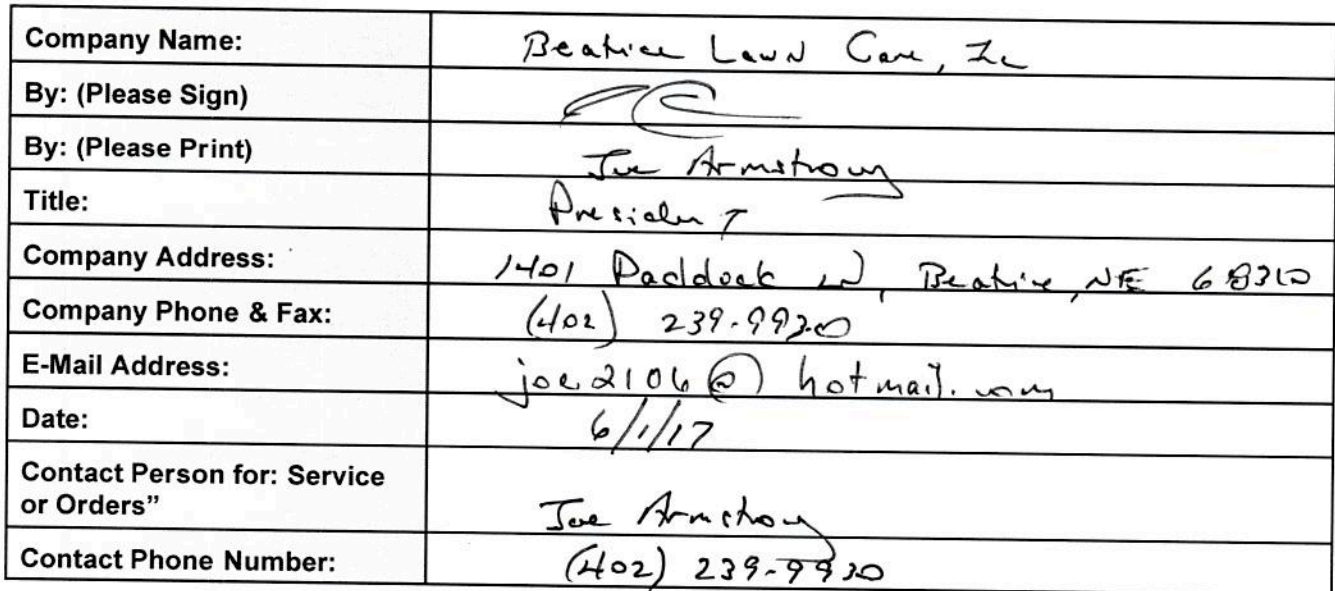 Company Name: Beatrice Lawn Care, Inc
By: (Please Sign)
By: (Please Print) Joe Armstrong
Title: President
Company Address: 1401 Paddock Ln, Beatrice, NE 68310
Company Phone & Fax: (402) 239-9930
E-Mail Address: joe2106@hotmail.com
Date: 6/1/17
Contact Person for: Service
or Orders” Joe Armstrong
Contact Phone Number: (402) 239-9930